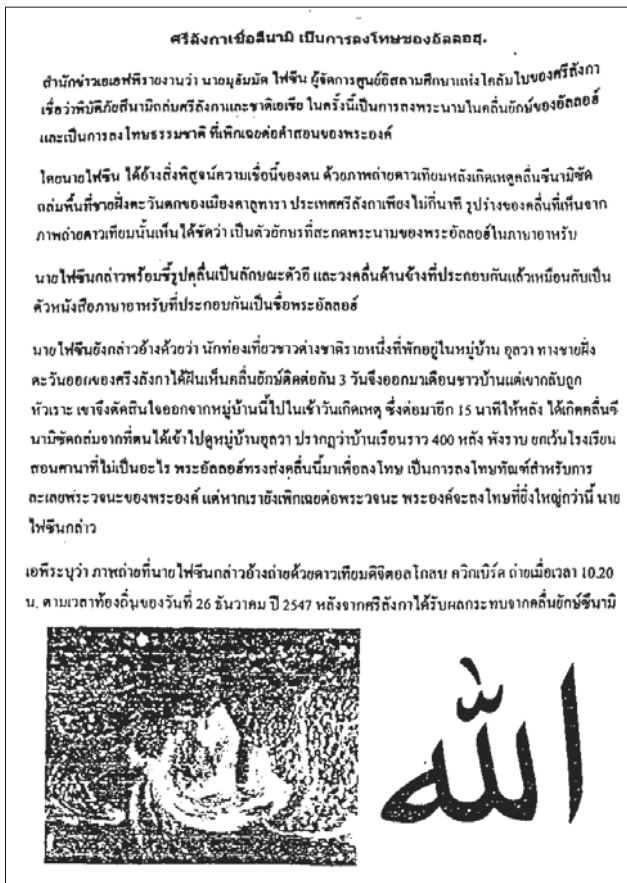 ศรีลังกาเชื่อสึนามิ เป็นการลงโทษของอัลลอฮฺ.
สำนักข่าวเอเอฟพีรายงานว่า นายมุฮัมมัด ไฟซีน ผู้จัดการศูนย์อิสลามศึกษาแห่งโคลัมโบของศรีลังกา
เชื่อว่าพิบัติภัยสึนามิถล่มศรีลังกาและชาติเอเชีย ในครั้งนี้เป็นการลงพระนามในคลื่นยักษ์ของอัลลอฮ์
และเป็นการลงโทษธรรมชาติ ที่เพิกเฉยต่อคำสอนของพระองค์
โดยนายไฟซีน ได้อ้างสิ่งพิสูจน์ความเชื่อนี้ของตน ด้วยภาพถ่ายดาวเทียมหลังเกิดเหตุคลื่นซึนามิซัด
ถล่มพื้นที่ชายฝั่งตะวันตกของเมืองคาลูทารา ประเทศศรีลังกาเพียงไม่กี่นาที รูปร่างของคลื่นที่เห็นจาก
ภาพถ่ายดาวเทียมนั้นเห็นได้ชัดว่า เป็นตัวอักษรที่สะกดพระนามของพระอัลลอฮ์ในภาษาอาหรับ
นายไฟซีนกล่าวพร้อมชี้รูปคลื่นเป็นลักษณะตัวอี และวงคลื่นด้านข้างที่ประกอบกันแล้วเหมือนกับเป็น
ตัวหนังสือภาษาอาหรับที่ประกอบกันเป็นชื่อพระอัลลอฮ์
นายไฟซีนยังกล่าวอ้างด้วยว่า นักท่องเที่ยวชาวต่างชาติรายหนึ่งที่พักอยู่ในหมู่บ้าน อุลวา ทางชายฝั่ง
ตะวันออกของศรีงลังกาได้ฝันเห็นคลื่นยักษ์ติดต่อกัน 3 วันจึงออกมาเตือนชาวบ้านแต่เขากลับถูก
หัวเราะ เขาจึงตัดสินใจออกจากหมู่บ้านนี้ไปในเช้าวันเกิดเหตุ ซึ่งต่อมาอีก 15 นาทีให้หลัง ได้เกิดคลื่นซึ
นามิซัดถล่มจากที่ตนได้เข้าไปดูหมู่บ้านอุลวา ปรากฏว่าบ้านเรือนราว 400 หลัง พังราบ ยกเว้นโรงเรียน
สอนศานาที่ไม่เป็นอะไร พระอัลลอฮ์ทรงส่งคลื่นนี้มาเพื่อลงโทษ เป็นการลงโทษทัณฑ์สำหรับการ
ละเลยพระวจนะของพระองค์ แต่หากเรายังเพิกเฉยต่อพระวจนะ พระองค์จะลงโทษที่ยิ่งใหญ่กว่านี้ นาย
ไฟซีนกล่าว
เอพีระบุว่า ภาพถ่ายที่นายไฟซีนกล่าวอ้างถ่ายด้วยดาวเทียมดิจิตอลโกลบ ควิกเบิร์ด ถ่ายเมื่อเวลา 10.20
น. ตามเวลาท้องถิ่นของวันที่ 26 ธันวาคม ปี 2547 หลังจากศรีลังกาได้รับผลกระทบจากคลื่นยักษ์ซึนามิ
الله